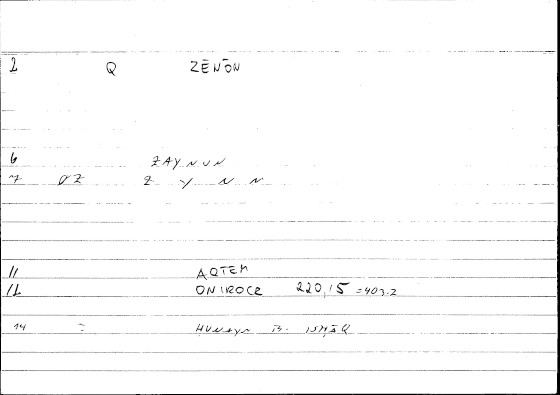 2 Q ZĒNŌN
6 ZAYNUN
7 ØZ Z Y N N
11 AQTEM
12 ONIROCR 220,15 =403.2
14 = ḤUNAYN B. ISḤĀQ